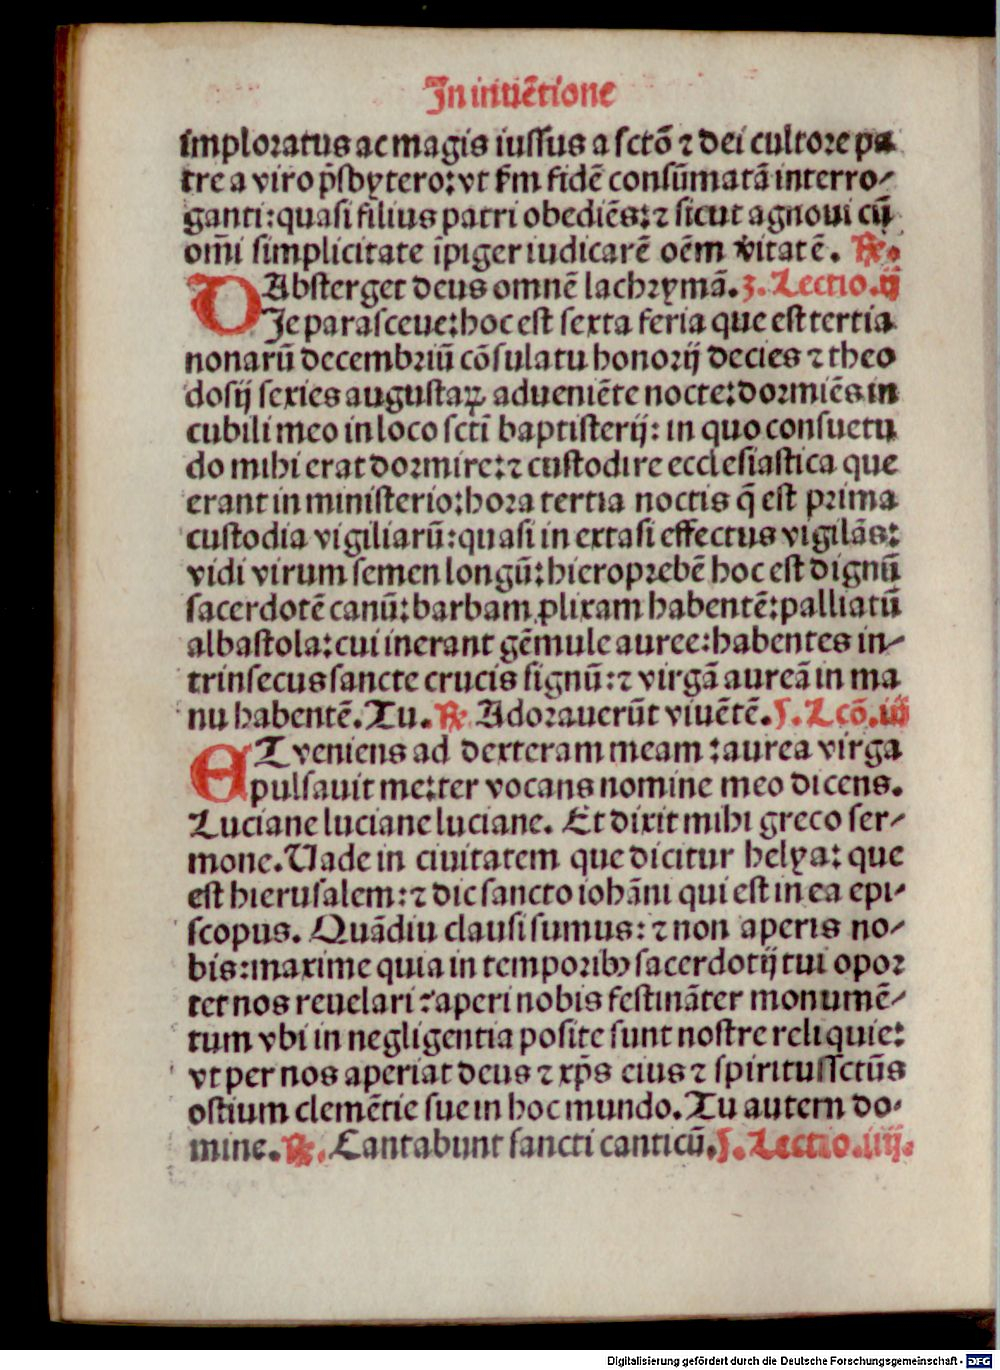 In inuētione
imploratus ac magis iussus a sctō ⁊ dei cultore pa
tre a viro p̄sbytero: vt s̄m fidē consūmatā interro-
ganti: quasi filius patri obediēs: ⁊ sicut agnoui cū
om̄i simplicitate īpiger iudicarē oēm v̄itatē. ℟.
Absterget deus omnē lachrymā. 3. Lectio. ij
DIe parasceue: hoc est sexta feria que est tertia
nonarū decembriū cōsulatu honorij decies ⁊ theo
dosij sexies augustaꝝ adueniēte nocte: dormiēs in
cubili meo in loco sctī baptisterij: in quo consuetu
do mihi erat dormire: ⁊ custodire ecclesiastica que
erant in ministerio: hora tertia noctis q̄ est prima
custodia vigiliarū: quasi in extasi effectus vigilās:
vidi virum semen longū: hieroprebē hoc est dignū
sacerdotē canū: barbam ꝓlixam habentē: palliatū
alba stola: cui inerant gēmule auree: habentes in-
trinsecus sancte crucis signū: ⁊ virgā aureā in ma
nu habentē. Tu. ℟ Adorauerūt viuētē. 5. Lcō. iij
ET veniens ad dexteram meam: aurea virga
pulsauit me: ter vocans nomine meo dicens.
Luciane luciane luciane. Et dixit mihi greco ser-
mone. Uade in ciuitatem que dicitur helya: que
est hierusalem: ⁊ dic sancto iohāni qui est in ea epi-
scopus. Quādiu clausi sumus: ⁊ non aperis no-
bis: maxime quia in temporibꝰ sacerdotij tui opor
tet nos reuelari: aperi nobis festināter monumē-
tum vbi in negligentia posite sunt nostre reliquie:
vt per nos aperiat deus ⁊ xp̄s eius ⁊ spiritussctūs
ostium clemētie sue in hoc mundo. Tu autem do-
mine. ℟. Cantabunt sancti canticū. 5. Lectio. iiij.
Digitalisierung gefördert durch die Deutsche Forschungsgemeinschaft - DFG